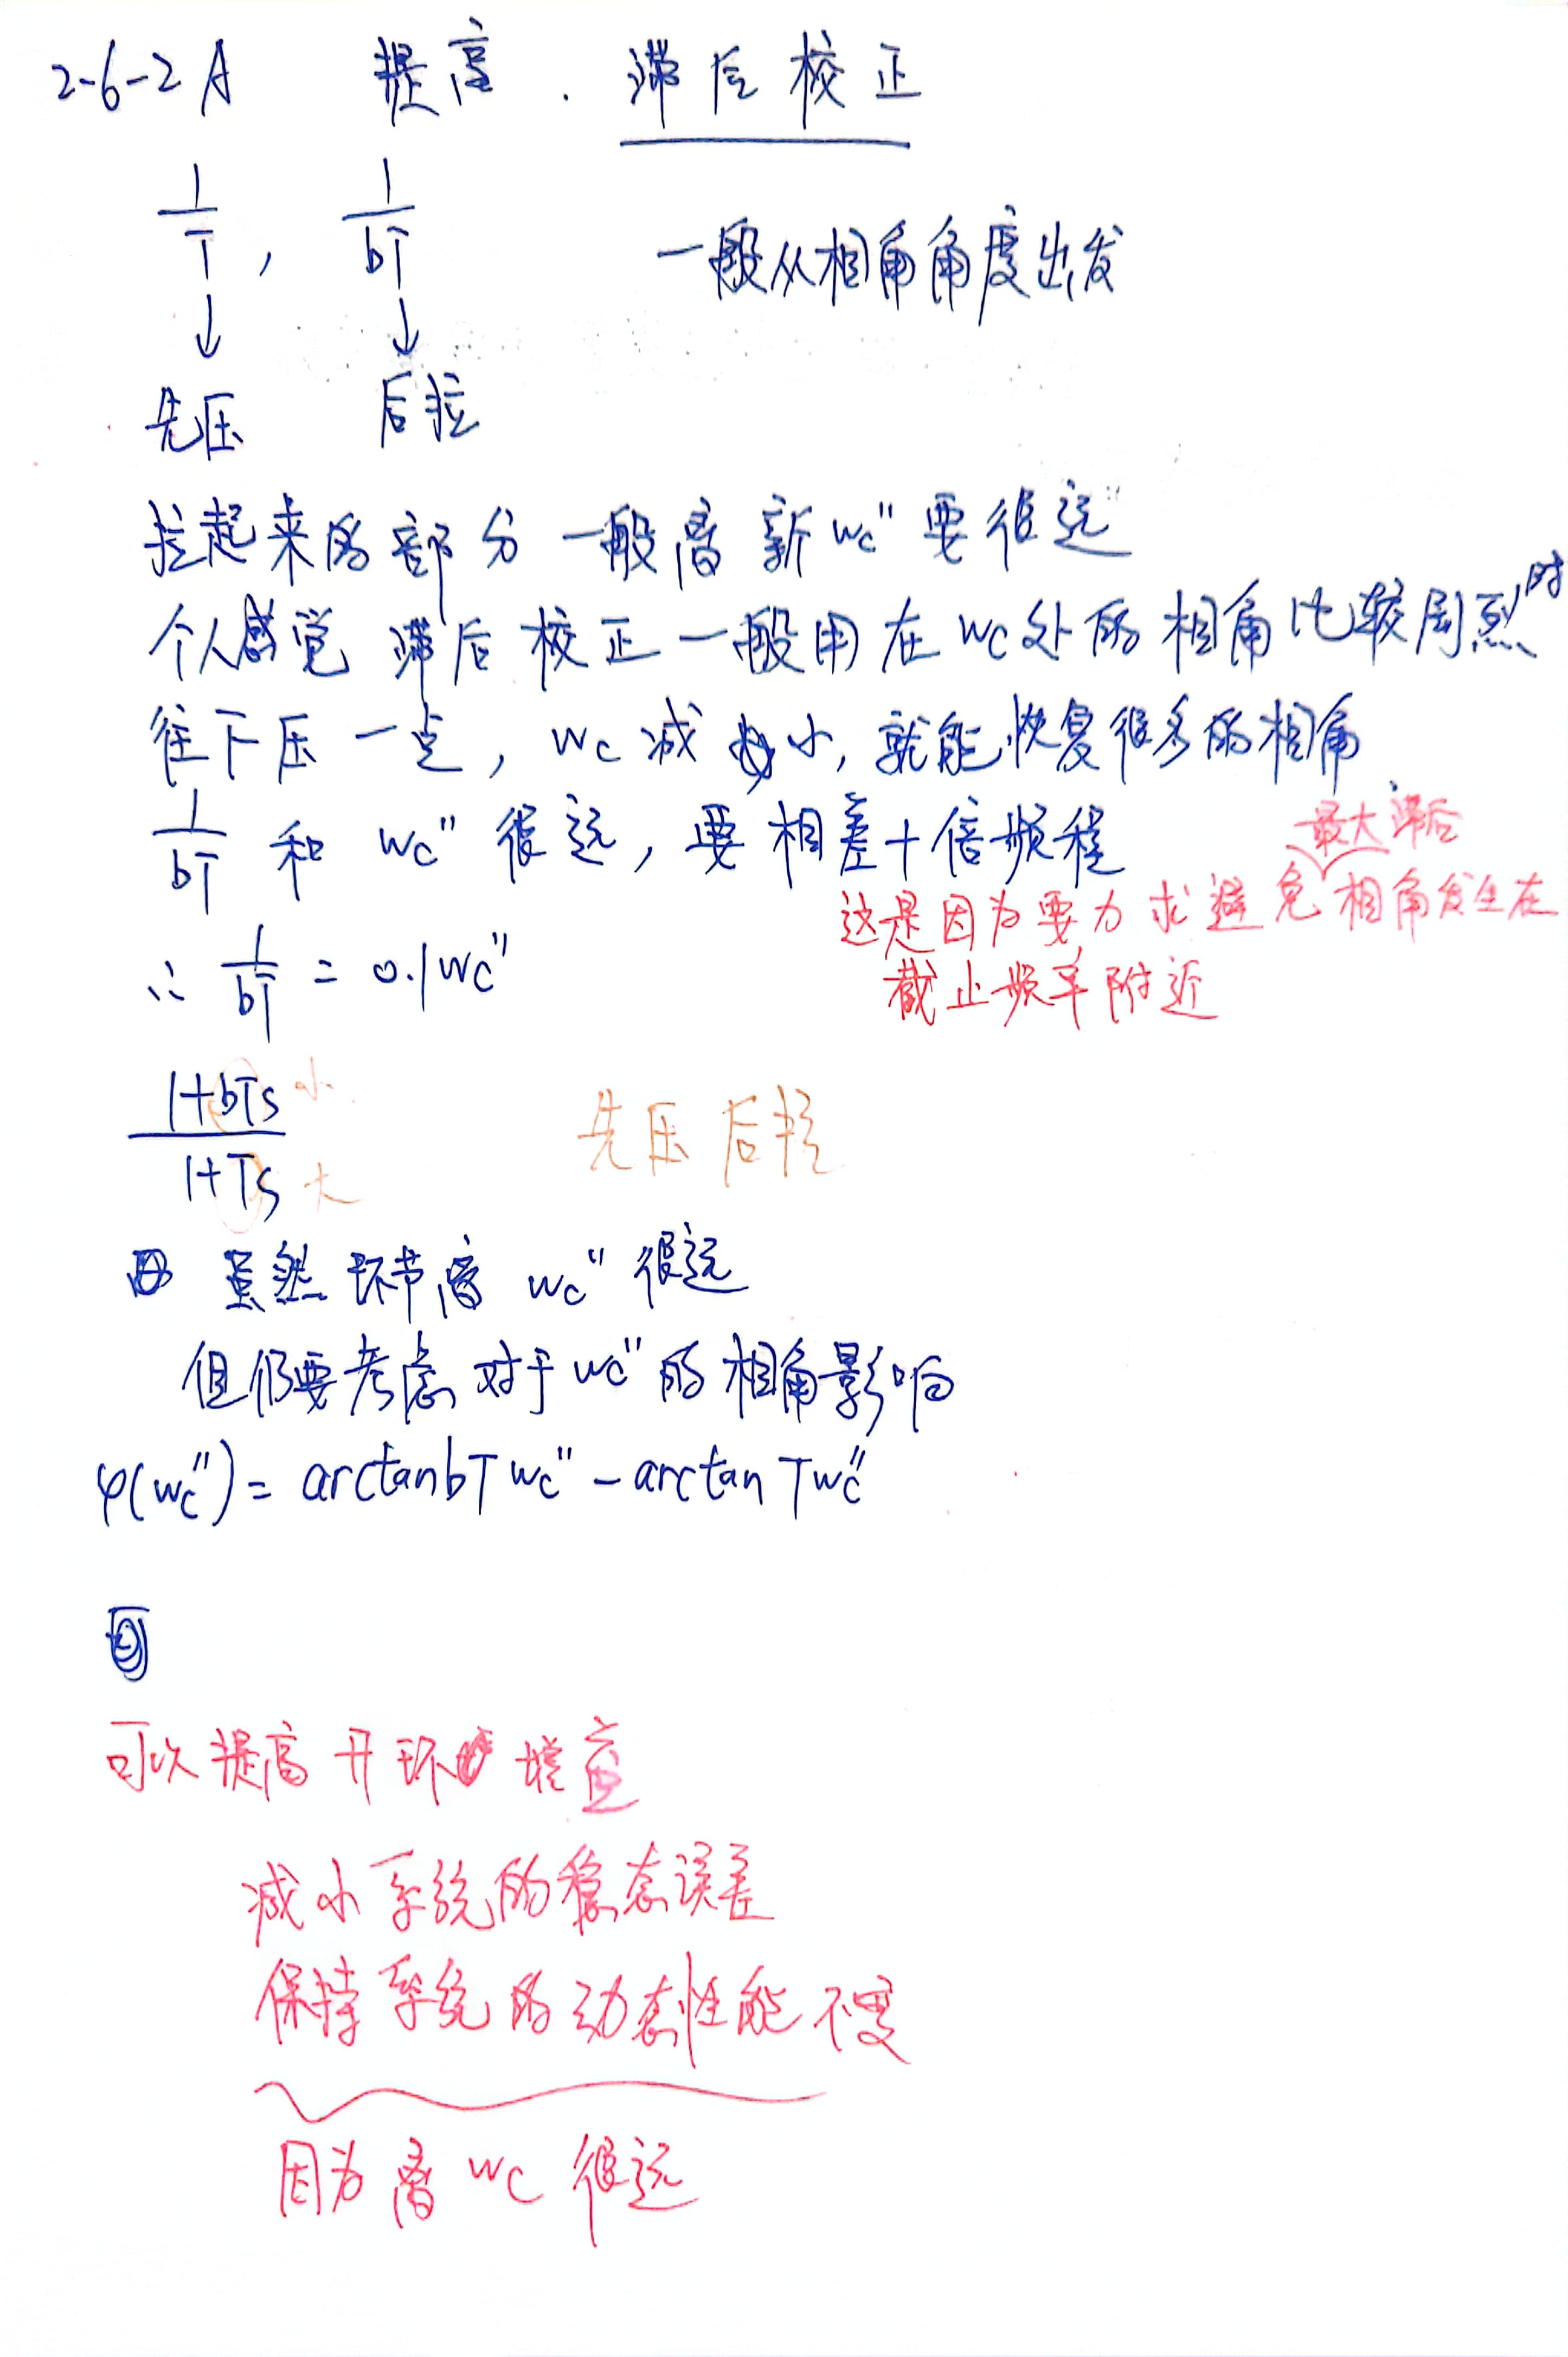 2-6-2A 提高. 滞后校正
1/T , 1/bT 一般从相角角度出发
↓ ↓
先压 后拉
拉起来的部分一般离新wc''要很远
个人感觉滞后校正一般用在wc处的相角比较剧烈时
往下压一点, wc减小, 就能恢复很多的相角
1/bT 和 wc'' 很远, 要相差十倍频程
这是因为要力求避免最大滞后相角发生在
截止频率附近
∴ 1/bT = 0.1wc''
(1+bTs)/(1+Ts) 小 大 先压后拉
虽然环节离 wc'' 很远
但仍要考虑对于wc''的相角影响
φ(wc'') = arctanbTwc'' - arctanTwc''
可以提高开环增益
减小系统的稳态误差
保持系统的动态性能不变
因为离 wc 很远